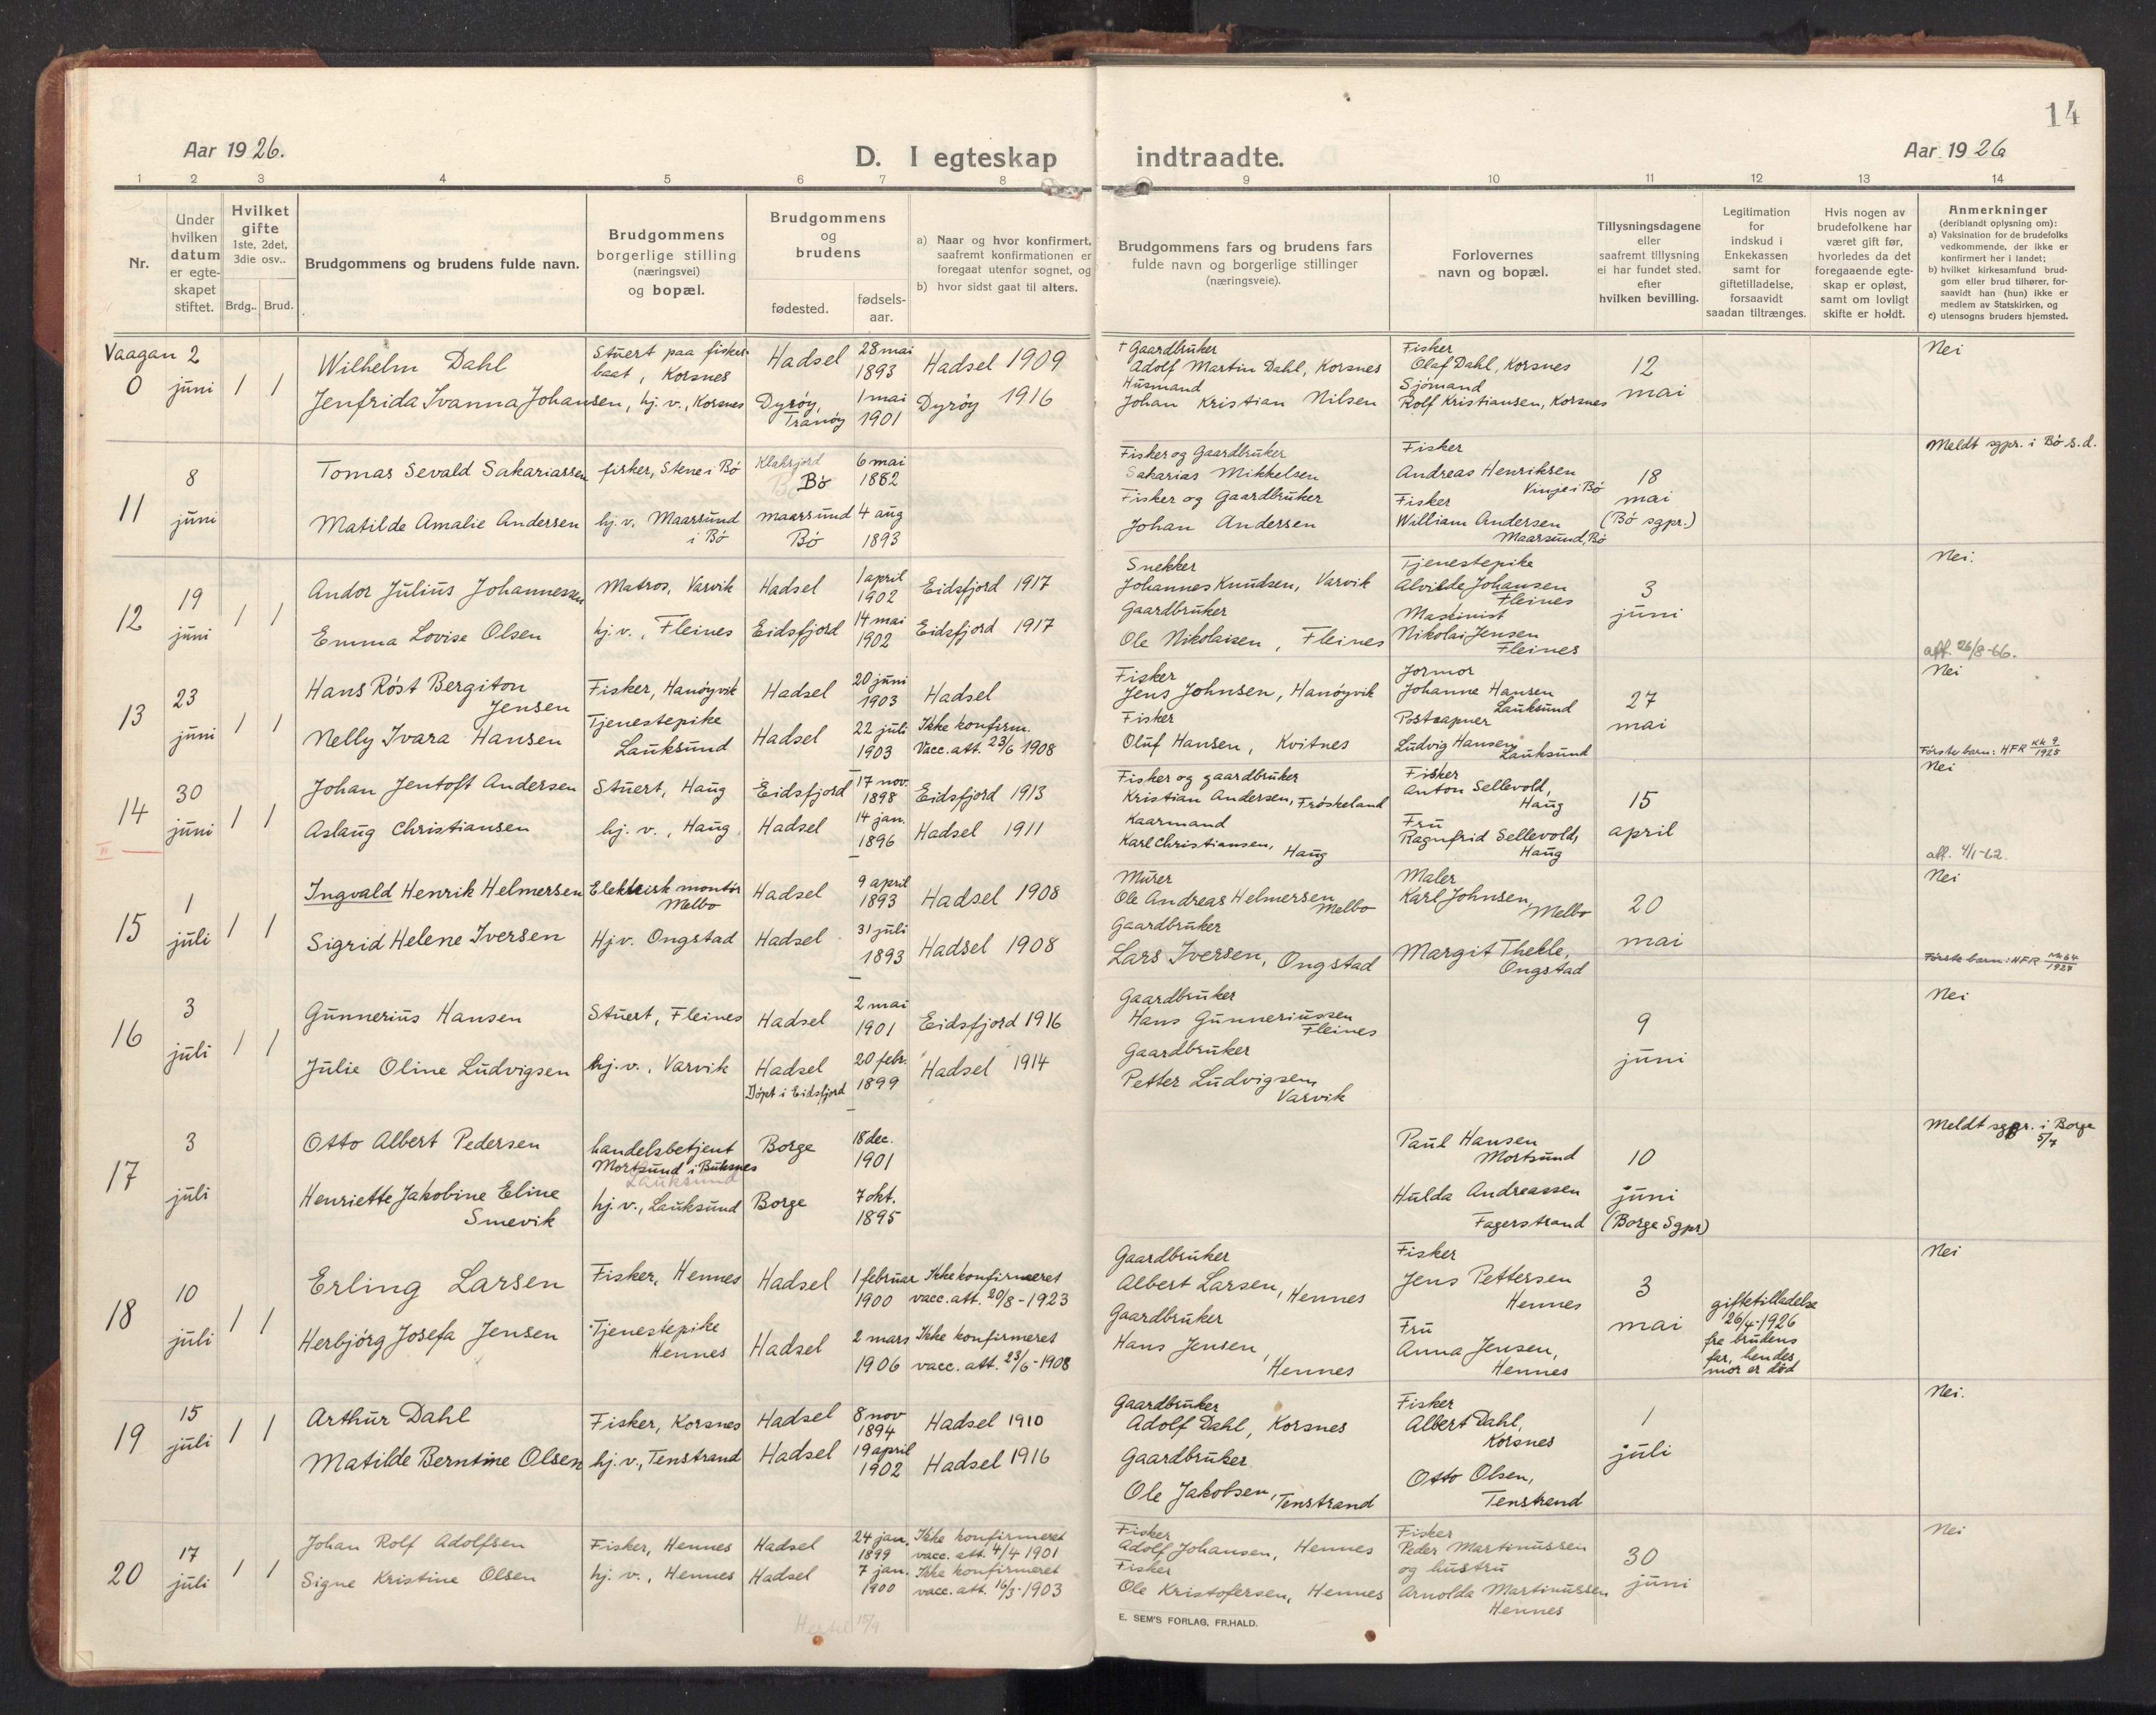 14
Aar 1926.
D. I egteskap indtraadte.
Aar 1926
1 2 3 4 5 6 7 8 9 10 11 12 13 14
Nr.
Under
hvilken
datum
er egte-
skapet
stiftet.
Hvilket
gifte
1ste, 2det,
3die osv..
Brdg.. Brud.
Brudgommens og brudens fulde navn.
Brudgommens
borgerlige stilling
(næringsvei)
og bopæl.
Brudgommens
og
brudens
fødested.
fødsels-
aar.
a) Naar og hvor konfirmert,
saafremt konfirmationen er
foregaat utenfor sognet, og
b) hvor sidst gaat til alters.
Brudgommens fars og brudens fars
fulde navn og borgerlige stillinger
(næringsveie).
Forlovernes
navn og bopæl.
Tillysningsdagene
eller
saafremt tillysning
ei har fundet sted.
efter
hvilken bevilling.
Legitimation
for
indskud i
Enkekassen
samt for
giftetilladelse,
forsaavidt
saadan tiltrænges.
Hvis nogen av
brudefolkene har
været gift før,
hvorledes da det
foregaaende egte-
skap er opløst,
samt om lovligt
skifte er holdt.
Anmerkninger
(deriblandt oplysning om):
a) Vaksination for de brudefolks
vedkommende, der ikke er
konfirmert her i landet;
b) hvilket kirkesamfund brud-
gom eller brud tilhører, for-
saavidt han (hun) ikke er
medlem av Statskirken, og
c) utensogns bruders hjemsted.
Vaagan
0
2
juni
1 1
Wilhelm Dahl
Stuert paa fisker-
baat, Korsnes
Hadsel
28 mai
1893
Hadsel 1909
† Gaardbruker
Adolf Martin Dahl, Korsnes
Fisker
Olaf Dahl, Korsnes
12
mai
Nei
Jenfrida Ivanna Johansen, hj. v., Korsnes
Dyrøy,
Tranöy
1 mai
1901
Dyrøy 1916
Husmand
Johan Kristian Nilsen
Sjömand
Rolf Kristiansen, Korsnes
11
8
juni
Tomas Sevald Sakariassen
fisker, Stene i Bö
Klaksjord
Bö
6 mai
1882
Fisker og Gaardbruker
Sakarias Mikkelsen
Fisker
Andreas Henriksen
Vinje i Bö
18
mai
(Bö sgpr.)
Meldt sgpr. i Bö s.d.
Matilde Amalie Andersen
hj. v. Maarsund
i Bö
maarsund
Bö
4 aug
1893
Fisker og Gaardbruker
Johan Andersen
Fisker
William Andersen
Maarsund, Bö
12
19
juni
1 1
Andor Julius Johannessen
Matros, Varvik
Hadsel
1 april
1902
Eidsfjord 1917
Snekker
Johannes Knudsen, Varvik
Tjenestepike
Alvilde Johansen
Fleines
3
juni
Nei.
Emma Lovise Olsen
hj. v., Fleines
Eidsfjord
14 mai
1902
Eidsfjord 1917
Gaardbruker
Ole Nikolaisen, Fleines
Maskinist
Nikolai Jensen
Fleines
att. 26/8-66.
13
23
juni
1 1
Hans Röst Bergiton
Jensen
Fisker, Hanöyvik
Hadsel
20 juni
1903
Hadsel
Fisker
Jens Johnsen, Hanöyvik
Jormor
Johanne Hansen
Lauksund
27
mai
Nei
Nelly Ivara Hansen
Tjenestepike
Lauksund
Hadsel
22 juli
1903
Ikke konfirm.
Vacc. att. 23/6 1908
Fisker
Oluf Hansen, Kvitnes
Postaapner
Ludvig Hansen
Lauksund
Förste barn: HFR
14
30
juni
1 1
Johan Jentoft Andersen
Stuert, Haug
Eidsfjord
17 nov.
1898
Eidsfjord 1913
Fisker og gaardbruker
Kristian Andersen, Fröskeland
Fisker
Anton Sellevold,
Haug
15
april
Nei
Aslaug Christiansen
hj. v., Haug
Hadsel
14 jan.
1896
Hadsel 1911
Kaarmand
Karl Christiansen,
Haug
Fru
Ragnfrid Sellevold,
Haug
att. 4/1-62.
15
1
juli
1 1
Ingvald Henrik Helmersen
Elektrisk montör
Melbo
Hadsel
9 april
1893
Hadsel 1908
Murer
Ole Andreas Helmersen
Melbo
Maler
Karl Johnsen,
Melbo
20
mai
Nei
Sigrid Helene Iversen
Hj v. Ongstad
Hadsel
31 juli
1893
Hadsel 1908
Gaardbruker
Lars Iversen, Ongstad
Margit Thekle,
Ongstad
Förste barn: HFR
16
3
juli
1 1
Gunnerius Hansen
Stuert, Fleines
Hadsel
2 mai
1901
Eidsfjord 1916
Gaardbruker
Hans Gunneriussen
Fleines
9
juni
Nei
Julie Oline Ludvigsen
hj. v., Varvik
Hadsel
Döpt i Eidsfjord
20 febr.
1899
Hadsel 1914
Gaardbruker
Petter Ludvigsen,
Varvik
17
3
juli
Otto Albert Pedersen
handelsbetjent
Mortsund i Buksnes
Lauksund
Borge
18 dec.
1901
Paul Hansen
Mortsund
10
juni
(Borge Sgpr)
Meldt sgpr. i Borge
5/7
Henriette Jakobine Eline
Smevik
hj. v., Lauksund
Borge
7 okt.
1895
Hulda Andreassen
Fagerstrand
18
10
juli
1 1
Erling Larsen
Fisker, Hennes
Hadsel
1 februar
1900
Ikke konfirmeret
vacc. att. 20/8-1923
Gaardbruker
Albert Larsen, Hennes
Fisker
Jens Pettersen
Hennes
3
mai
giftetilladelse
26/4-1926
fra brudens
far, hendes
mor er död
Nei
Herbjörg Josefa Jensen
Tjenestepike
Hennes
Hadsel
2 mars
1906
Ikke konfirmeret
vacc. att. 23/6-1908
Gaardbruker
Hans Jensen,
Hennes
Fru
Anna Jensen,
Hennes
19
15
juli
1 1
Arthur Dahl
Fisker, Korsnes
Hadsel
8 nov
1894
Hadsel 1910
Gaardbruker
Adolf Dahl, Korsnes
Fisker
Albert Dahl,
Korsnes
1
juli
Nei.
Matilde Berntine Olsen
hj. v., Tenstrand
Hadsel
19 april
1902
Hadsel 1916
Gaardbruker
Ole Jakobsen, Tenstrand
Otto Olsen,
Tenstrend
20
17
juli
1 1
Johan Rolf Adolfsen
Fisker, Hennes
Hadsel
24 jan.
1899
Ikke konfirmeret
vacc. att. 4/4 1901
Fisker
Adolf Johansen, Hennes
Fisker
Peder Martinussen
og hustru
Arnolda Martinussen
Hennes
30
juni
Nei
Signe Kristine Olsen
hj. v., Hennes
Hadsel
7 jan.
1900
Ikke konfirmeret
vacc. att. 16/3-1903
Fisker
Ole Kristofersen, Hennes
E. SEM'S FORLAG, FR.HALD.